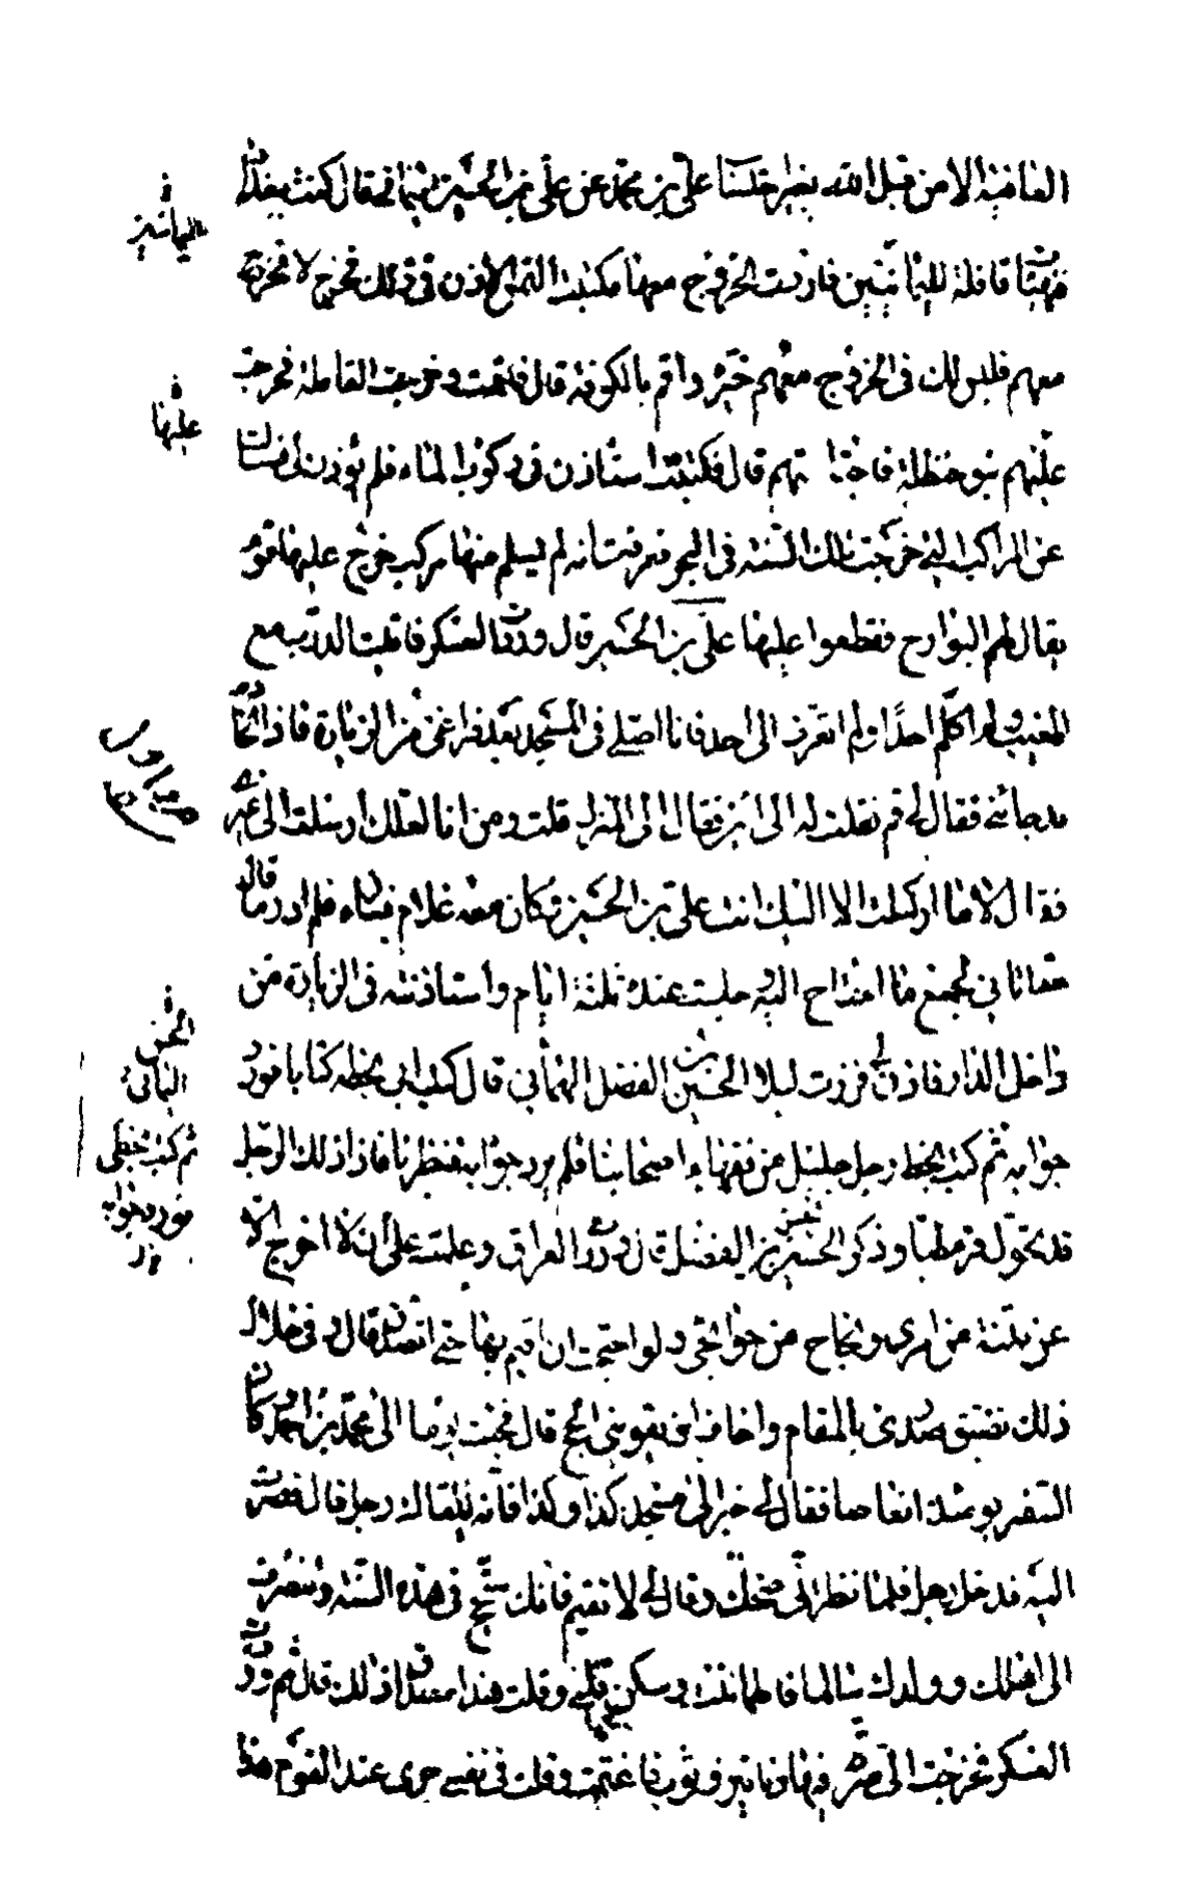 العافية الا من قبل الله بغير حبسنا علي بن محمد عن علي بن الحسين اليماني قال كنت ببغداد
فتهيأت قافلة لليمانيين فاردت الخروج معها فكتبت التمس الاذن في ذلك فخرج لا تخرج
معهم فليس لك في الخروج معهم خيرة واقم بالكوفة قال فاقمت وخرجت القافلة فخرجت
عليهم بنو حنظلة فاجتاحتهم قال فكتبت استاذن في ركوب الماء فلم يؤذن لي فسألت
عن المراكب التي خرجت تلك السنة في البحر فعرفت انه لم يسلم منها مركب خرج عليها قوم
يقال لهم البوارح فقطعوا عليها علي بن الحسين قال وردت العسكر فاتيت الدرب مع
المغيب ولم اكلم احدًا ولم اتعرف الى احد فانا اصلي في المسجد بعد فراغي من الزيارة فاذا بخادم
قد جاءني فقال لي قم فقلت له الى اين فقال الى المنزل قلت ومن انا لعلك ارسلت الى غيري
فقال لا ما ارسلت الا اليك انت علي بن الحسين وكان معه غلام فساره فلم ادر ما قال له
حتى اتاني بجميع ما احتاج اليه وجلست عنده ثلثة ايام واستاذنته في الزيارة من
داخل الدار فاذن لي فزرت ليلا الحسن بن الفضل اليماني قال كتب ابي بخطه كتابا فورد
جوابه ثم كتب بخط رجل جليل من فقهاء اصحابنا فلم يرد جوابه فنظرنا فاذا ذلك الرجل
قد تحول قرمطيا وذكر الحسين بن الفضل قال وردت العراق وعلمت على ان لا اخرج الا
عن بينة من امري ونجاح من حوائجي ولو احتجت ان اقيم بها حتى اتصدق قال وفي خلال
ذلك تضيق صدري بالمقام واخاف ان يفوتني الحج قال فجئت يوما الى محمد بن احمد وكان
السفير يومئذ اتقاضاه فقال لي صر الى مسجد كذا وكذا فانه يلقاك رجل قال فصرت
اليه فدخل رجل فلما نظر الي ضحك وقال لي لا تغتم فانك ستحج في هذه السنة وتنصرف
الى اهلك وولدك سالما فاطمأننت وسكن قلبي وقلت هذا مصداق ذلك قال ثم وردت
العسكر فخرجت الي صرة فيها دنانير وثوب فاغتممت وقلت في نفسي جزى عند القوم هذا
اليمانيين
عليها
الحسن
اليماني
ثم كتب بخطي
فورد جوابه